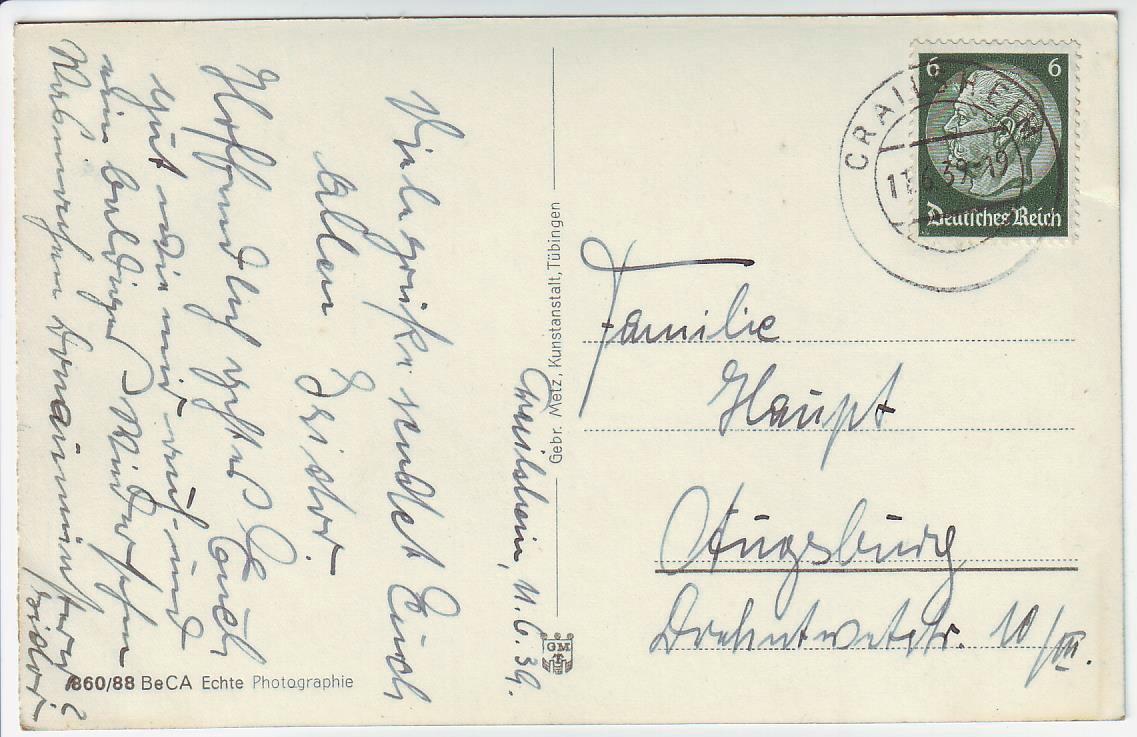 Crailsheim, 11.6.39.
Viele Grüße sendet Euch
Allen Isidor.
Hoffendlich gehts Euch
gut wie mir auch und
ein baldiges Wiedersehen
Isidor
Familie
Haupt
Augsburg
Drehntwetstr. 10/III.
CRAILSHEIM
11.6.39.-19
6 6
Deutsches Reich
Gebr. Metz, Kunstanstalt, Tübingen
GM
T
860/88 BeCA Echte Photographie